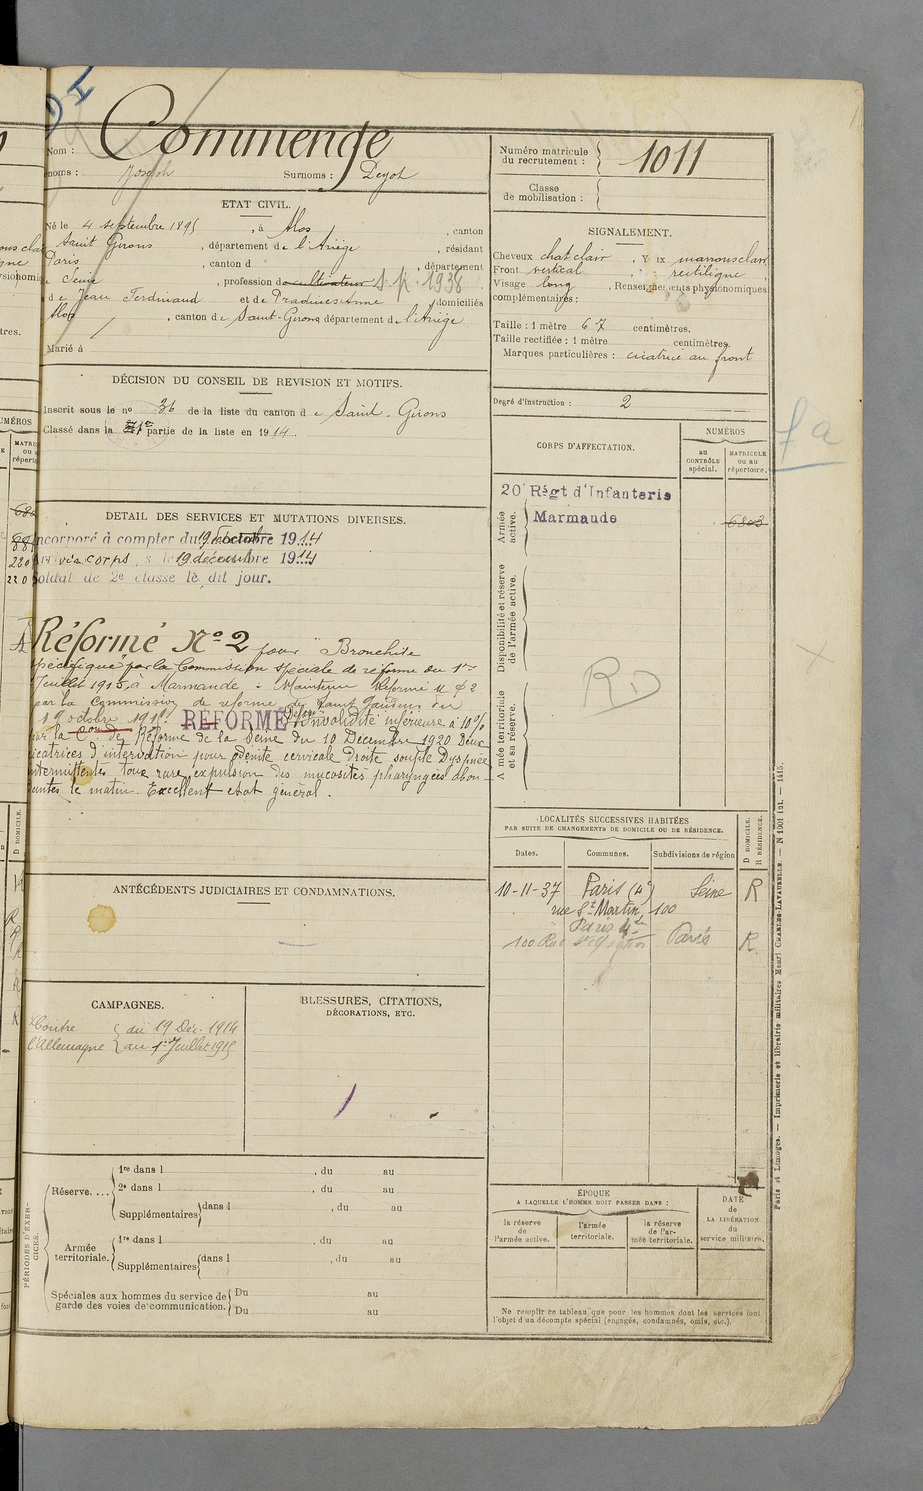 Nom : Commenge
Prénoms : Joseph Surnoms : Deyot
ETAT CIVIL.
Né le 4 septembre 1895, à Alos, canton
Saint Girons, département de l'Ariège, résidant
Paris, canton d , département
Seine, profession de cultivateur S.P. 1938
de Jean Ferdinand et de Pradines Anne domiciliés
Alos, canton de Saint-Girons département de l'Ariège
Marié à
DÉCISION DU CONSEIL DE REVISION ET MOTIFS.
Inscrit sous le nº 36 de la liste du canton de Saint-Girons
Classé dans la 1re partie de la liste en 1914.
DETAIL DES SERVICES ET MUTATIONS DIVERSES.
Incorporé à compter du 19 décembre 1914
Arrivé au corps, le 19 décembre 1914
Soldat de 2e classe le dit jour.
Réformé Nº 2 pour "Bronchite
spécifique" par la Commission spéciale de réforme du 1er
Juillet 1915, à Marmande - Maintenu Réformé nº 2
par la commission de réforme de Saint Gaudens du
19 octobre 1918. RÉFORMÉ Invalidité inférieure à 10%
par la Con de Réforme de la Seine du 10 Décembre 1920 Deux
cicatrices d'intervention pour adénite cervicale droite souple Dyspnée
intermittentes toux rare, expulsion des mucosités pharyngées abon-
dantes le matin. Excellent état général.
ANTÉCÉDENTS JUDICIAIRES ET CONDAMNATIONS.
CAMPAGNES.
Contre du 19 Déc. 1914
l'Allemagne au 1er Juillet 1915
BLESSURES, CITATIONS,
DÉCORATIONS, ETC.
PÉRIODES D'EXERCICES.
Réserve....
1re dans l , du au
2e dans l , du au
Supplémentaires dans l , du au
Armée
territoriale.
1re dans l , du au
Supplémentaires dans l , du au
Spéciales aux hommes du service de
garde des voies de communication.
Du au
Du au
Numéro matricule
du recrutement : 1011
Classe
de mobilisation :
SIGNALEMENT.
Cheveux chat clair, Yeux marrons clair
Front vertical, rectiligne
Visage long, Renseignements physionomiques
complémentaires :
Taille : 1 mètre 67 centimètres.
Taille rectifiée : 1 mètre centimètres.
Marques particulières : cicatrice au front
Degré d'instruction : 2
CORPS D'AFFECTATION.
NUMÉROS
au
CONTRÔLE
spécial.
MATRICULE
OU AU
répertoire.
20 Régt d'Infanterie
Marmande
6803
Armée
active.
Disponibilité et réserve
de l'armée active.
Armée territoriale
et sa réserve.
RD
fa
LOCALITÉS SUCCESSIVES HABITÉES
PAR SUITE DE CHANGEMENTS DE DOMICILE OU DE RÉSIDENCE.
D DOMICILE.
R RÉSIDENCE.
Dates. Communes. Subdivisions de région
10-11-37 Paris (4e) Seine R
rue St Martin, 100
Paris 4e
100 Rue St Martin Paris R
ÉPOQUE
A LAQUELLE L'HOMME DOIT PASSER DANS :
la réserve
de
l'armée active.
l'armée
territoriale.
la réserve
de l'ar-
mée territoriale.
DATE
de
LA LIBÉRATION
du
service militaire.
Ne remplir ce tableau que pour les hommes dont les services font
l'objet d'un décompte spécial (engagés, condamnés, omis, etc.).
Paris et Limoges. — Imprimerie et librairie militaires Henri CHARLES-LAVAUZELLE. — N 1901 int. — 1415.